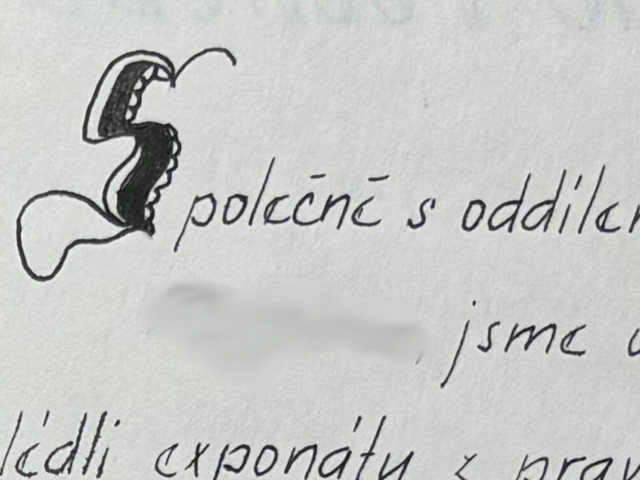 Společně s oddíle
jsme
lédli exponáty z prav